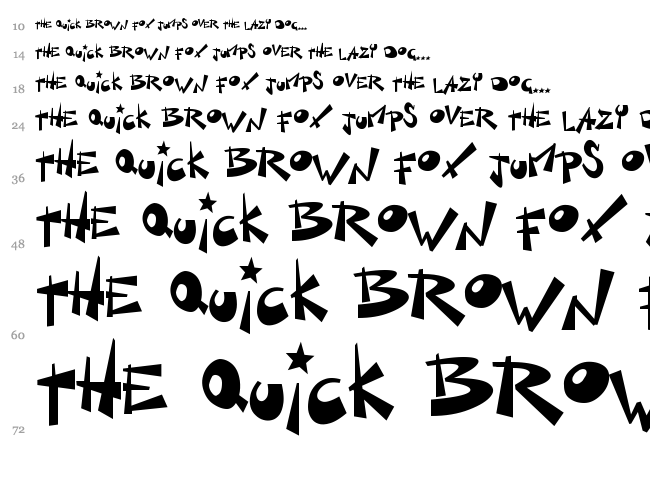 10 THE QUiCK BROWN FOX JUMPS OVER THE LAZY DOG...
14 THE QUiCK BROWN FOX JUMPS OVER THE LAZY DOG...
18 THE QUiCK BROWN FOX JUMPS OVER THE LAZY DOG...
24 THE QUiCK BROWN FOX JUMPS OVER THE LAZY D
36 THE QUiCK BROWN FOX JUMPS OV
48 THE QUiCK BROWN FOX
60 THE QUiCK BROWN
72 THE QUiCK BROW